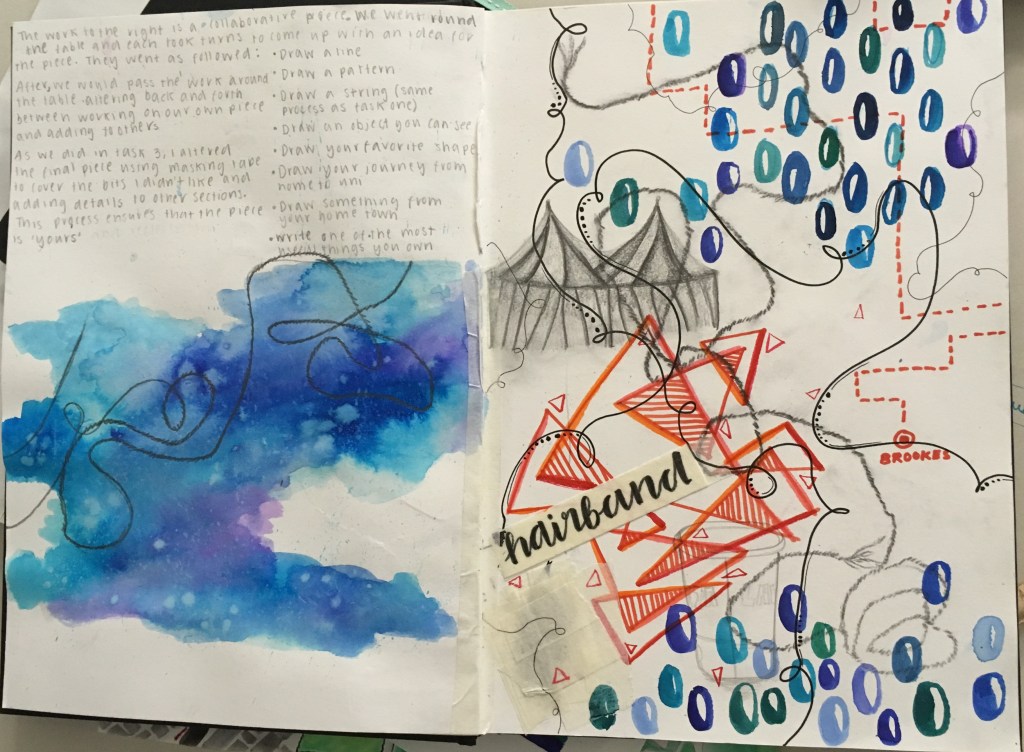 The work to the right is a collaborative piece. We went round
the table and each took turns to come up with an idea for
the piece. They went as followed:
After, we would pass the work around
the table altering back and forth
between working on our own piece
and adding to others
As we did in task 3, I altered
the final piece using masking tape
to cover the bits I didn't like and
adding details to other sections.
This process ensures that the piece
is 'yours'
• Draw a line
• Draw a pattern
• Draw a string (same
process as task one)
• Draw an object you can see
• Draw your favorite shape
• Draw your journey from
home to uni
• Draw something from
your home town
• write one of the most
things you own
hairband
BROOKES